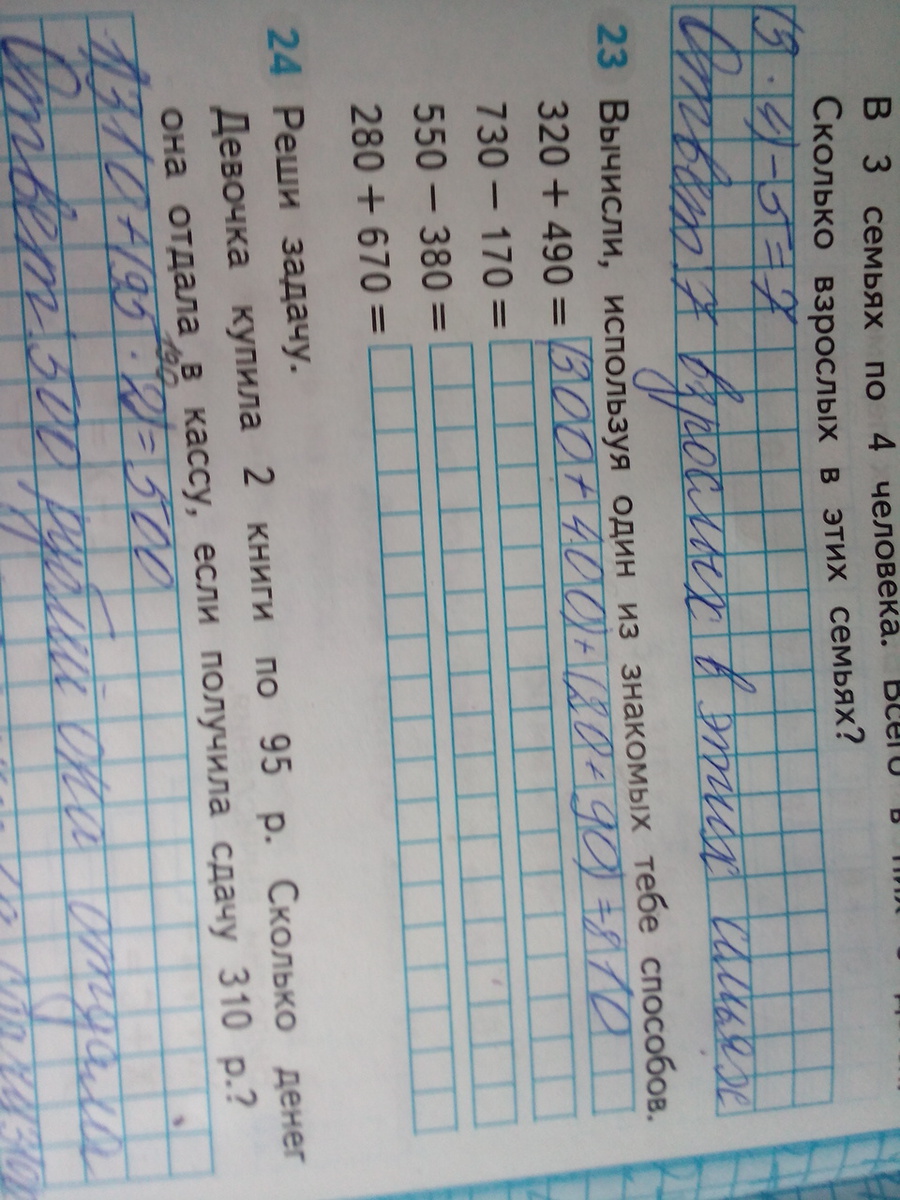 В 3 семьях по 4 человека. Всего в них
Сколько взрослых в этих семьях?
(3·4)-5=7
Ответ: 7 взрослых в этих
23 Вычисли, используя один из знакомых тебе способов.
320 + 490 = (300+400)+(20+90)=810
730 − 170 =
550 − 380 =
280 + 670 =
24 Реши задачу.
Девочка купила 2 книги по 95 р. Сколько денег
она отдала в кассу, если получила сдачу 310 р.?
190
310+(95·2)=500
Ответ: 500 рублей она отдала